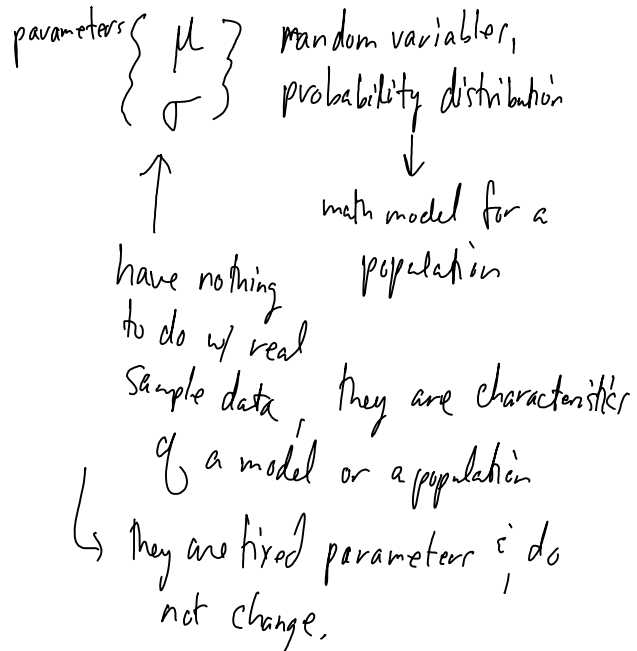 parameters { μ } random variables,
{ σ } probability distribution
↓
math model for a
population
↑
have nothing
to do w/ real
sample data, they are characteristics
of a model or a population
↳ they are fixed parameters & do
not change.